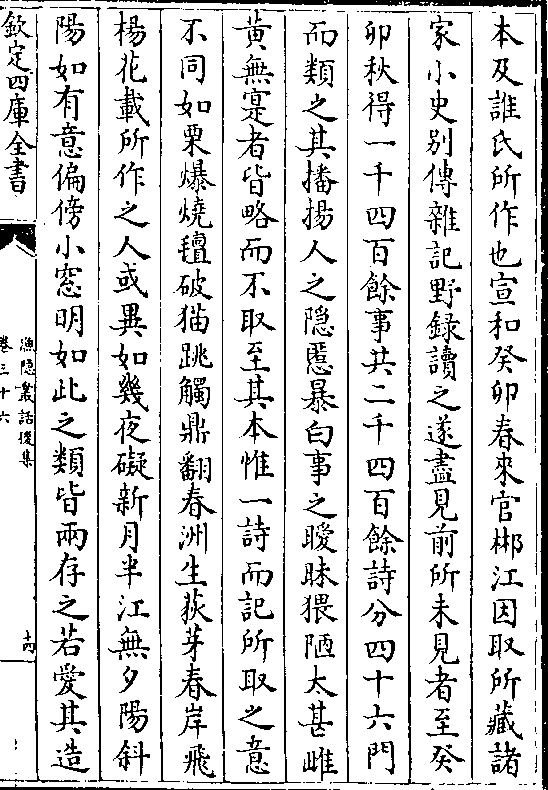 本及誰氏所作也宣和癸卯春來官郴江因取所藏諸
家小史别傳雜記野録讀之遂盡見前所未見者至癸
卯秋得一千四百餘事共二千四百餘詩分四十六門
而類之其播揚人之隠慝暴白事之曖昧猥陋太甚雌
黄無寔者皆略而不取至其本惟一詩而記所取之意
不同如栗爆燒氊破猫跳觸鼎翻春洲生荻芽春岸飛
楊花載所作之人或異如幾夜礙新月半江無夕陽斜
陽如有意偏傍小窓明如此之類皆兩存之若愛其造
欽定四庫全書
漁隠叢話後集
卷三十六
十四